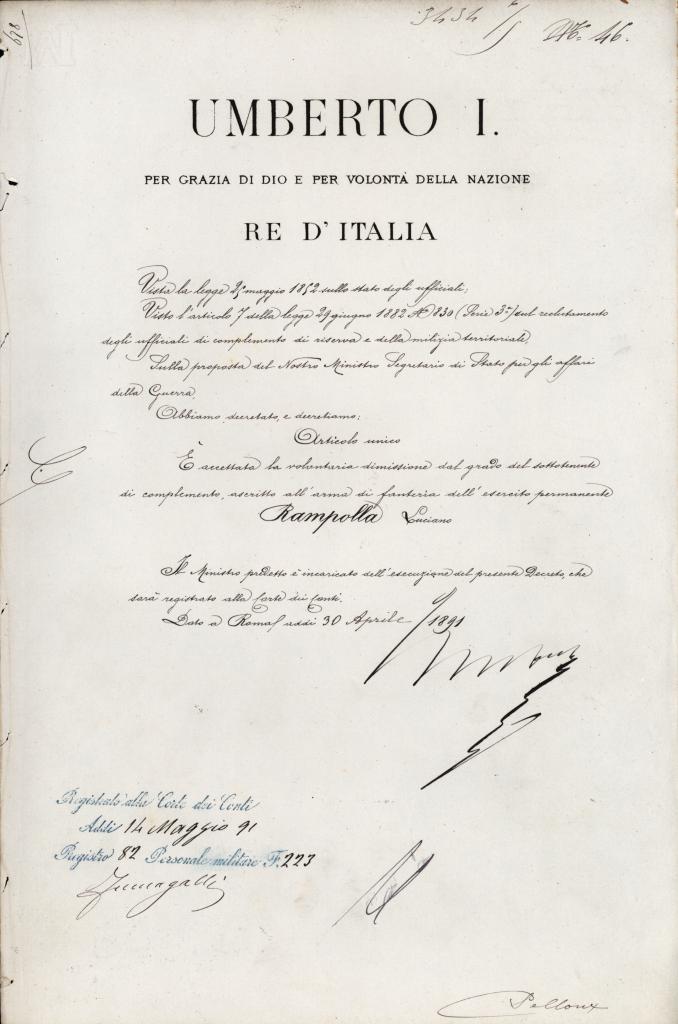 678
3434
No. 46.
UMBERTO I.
PER GRAZIA DI DIO E PER VOLONTÀ DELLA NAZIONE
RE D'ITALIA
Vista la legge 25 maggio 1852 sullo stato degli ufficiali;
Visto l'articolo 7 della legge 29 giugno 1882 N° 830 (Serie 3ª) sul reclutamento
degli ufficiali di complemento di riserva e della milizia territoriale,
Sulla proposta del Nostro Ministro Segretario di Stato per gli affari
della Guerra,
Abbiamo decretato, e decretiamo:
Articolo unico
È accettata la volontaria dimissione dal grado del sottotenente
di complemento, ascritto all'arma di fanteria dell'esercito permanente
Rampolla Luciano
Il Ministro predetto è incaricato dell'esecuzione del presente Decreto, che
sarà registrato alla Corte dei Conti.
Dato a Roma addì 30 Aprile 1891
Umberto
Registrato alla Corte dei Conti
Addì 14 Maggio 91
Registro 82 Personale militare F. 223
Fumagalli
Pelloux